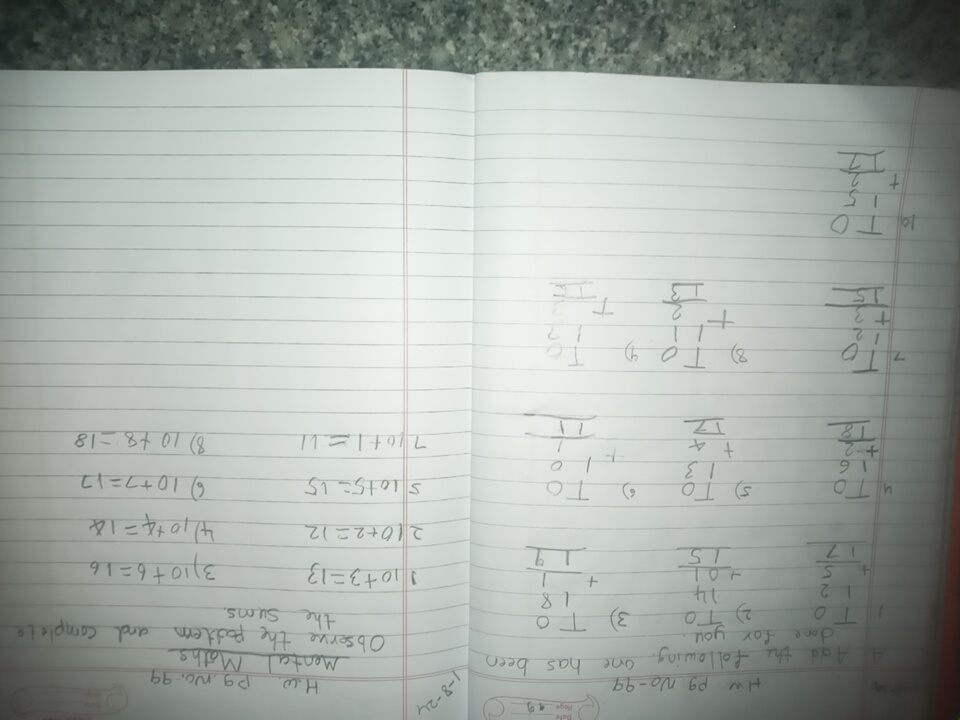 Date
Page 99
HW Pg No-99
A Add the following. One has been
done for you.
1 T O 2) T O 3) T O
1 2 14 18
+ 5 + 01 + 1
1 7 1 5 1 9
4 T O 5) T O 6) T O
1 6 1 3 1 0
+ 2 + 4 + 1
18 17 11
7 T O 8) T O 9) T O
1 2 1 1 1 2
+ 3 + 2 + 2
15 13
10 T O
1 5
+ 2
17
1-8-24
H.W. Pg. No. 99
Mental Maths
Observe the pattern and complete
the sums.
1 10+3=13 3) 10+6=16
2 10+2=12 4) 10+4=14
5 10+5=15 6) 10+7=17
7 10+1=11 8) 10+8=18